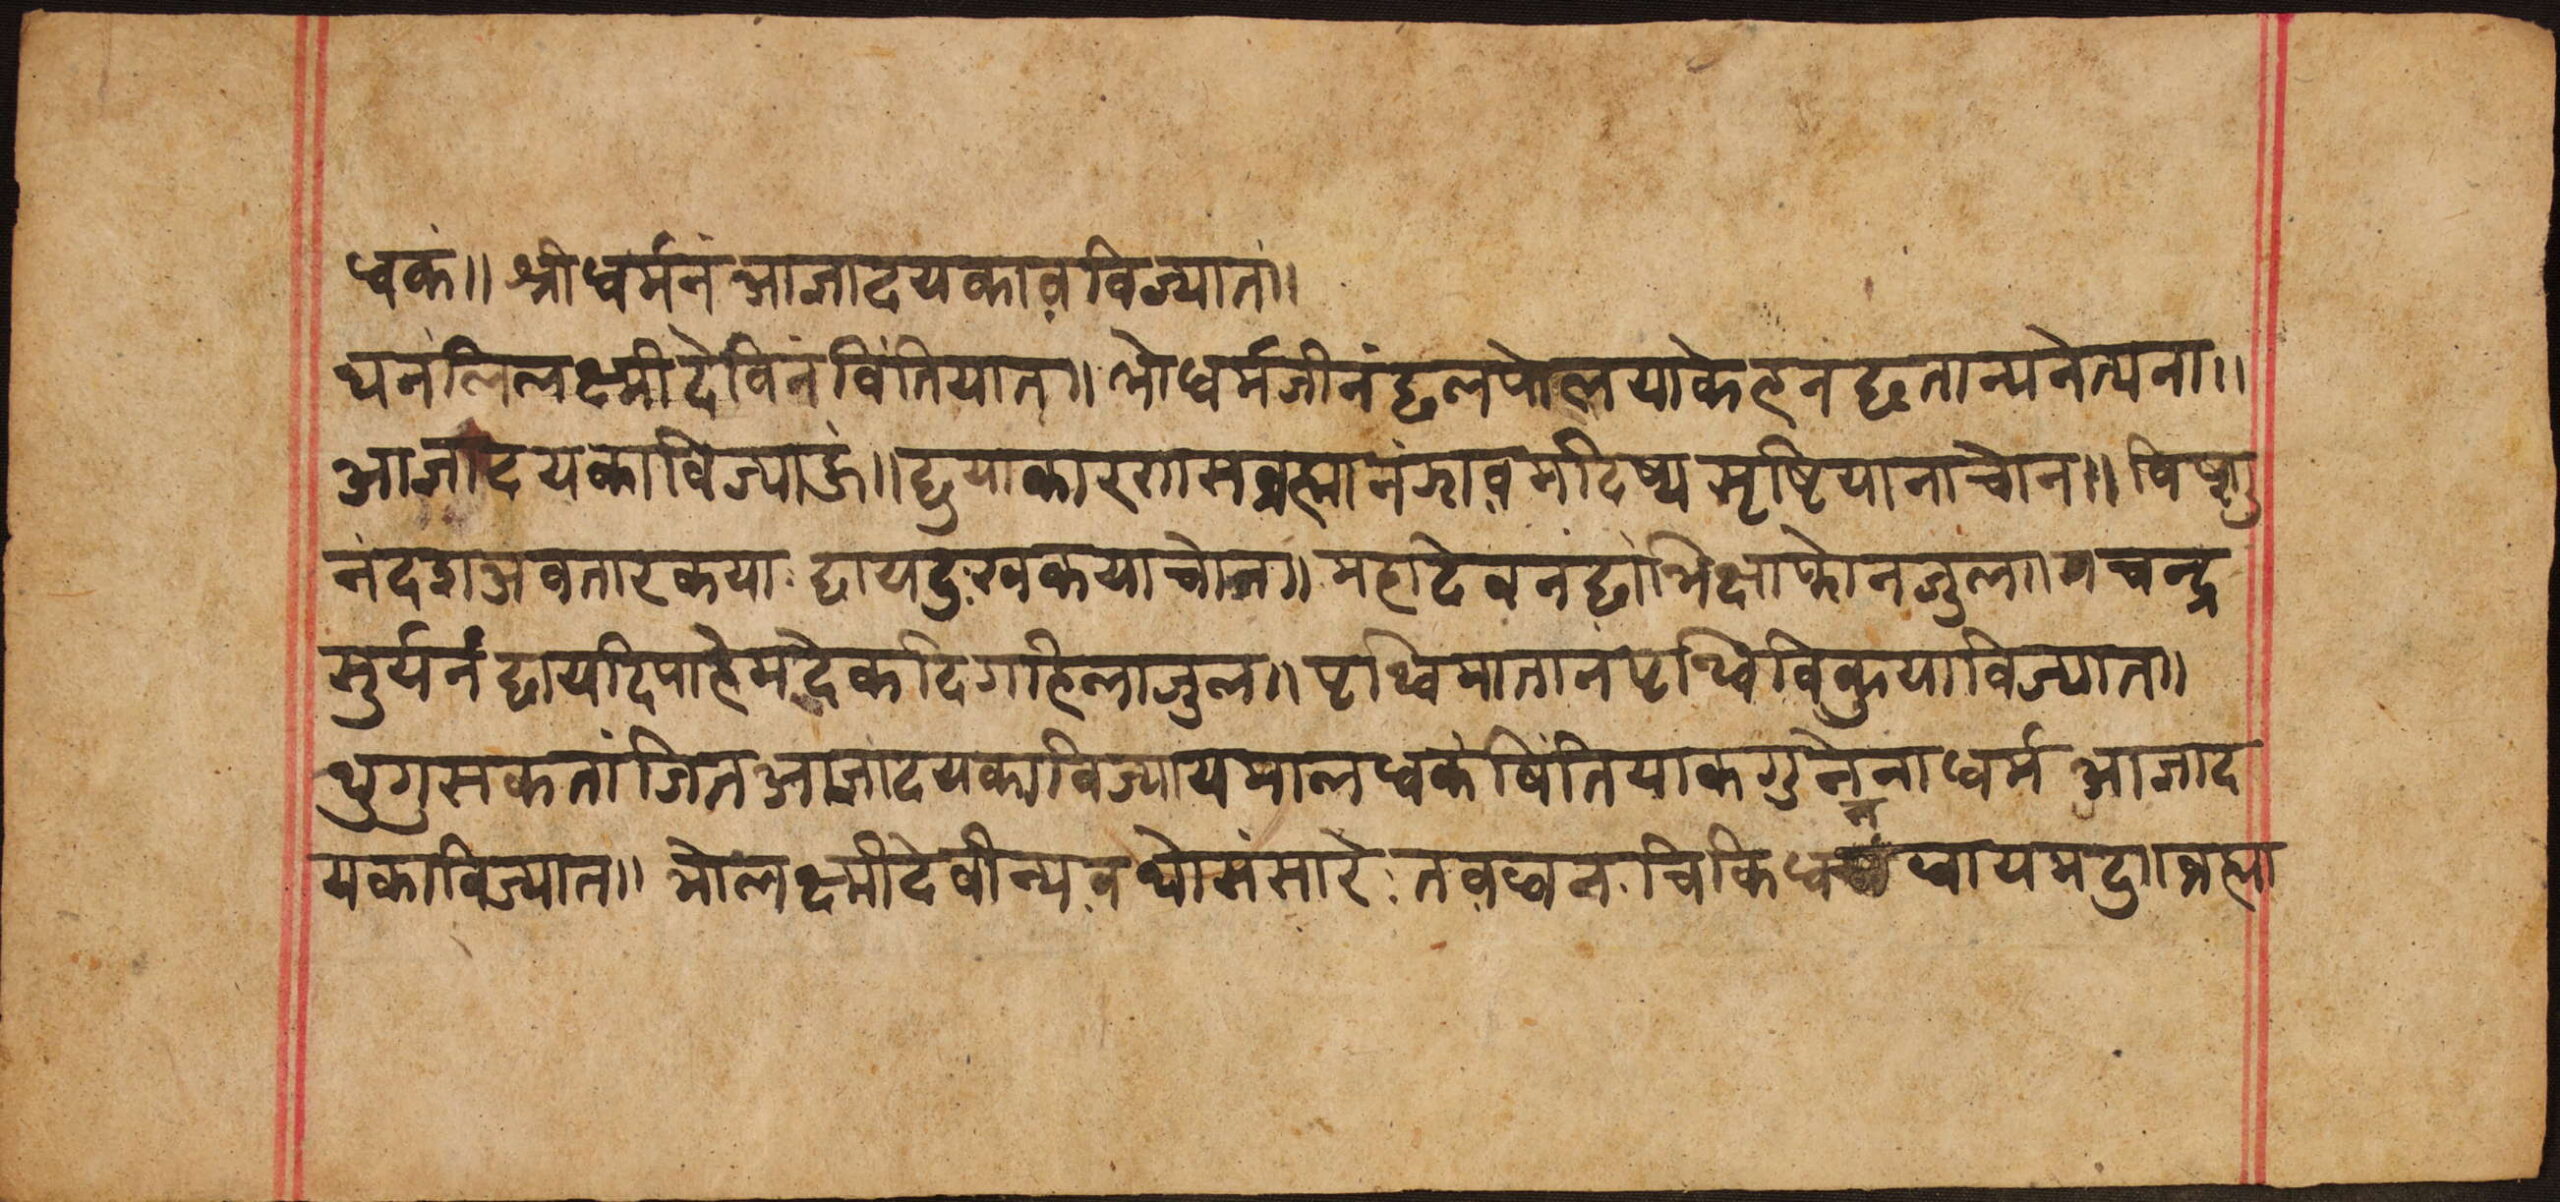 धकं॥ श्रीधर्मनं आज्ञादयकाव़ विज्यातं॥
थनंलि लक्ष्मीदेविनं विंतियात॥ भो धर्मजीनं छलपोलयाके ल्हनं छता न्यनेत्यना॥
आज्ञादयका विज्याहुं॥ छुया कारणस ब्रह्मानं झाव़मदिष्य सृष्टियानाचोन॥ विष्णु
नं दश अवतार कया छाय दुःख कयाचोन॥ महादेवनं छा भिक्षाफोनजुल॥ चन्द्र
सुर्यनं छाय दिपाहे मदेक दिगहिलाजुल॥ पृथ्विमातानं पृथ्वि विकुया विज्यात॥
थुगुसकतां जित आज्ञादयका विज्यायमाल धकं विंतियाक गुनेना धर्म आज्ञाद
यका विज्यात॥ भो लक्ष्मीदेवी न्यव़ थो संसारे तव़धन चिकिधन धायमदु॥ ब्रह्मा